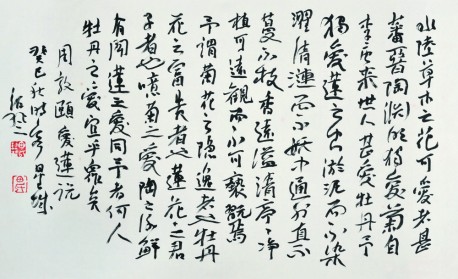 水陸草木之花可愛者甚
蕃晉陶淵明獨愛菊自
李唐来世人甚愛牡丹予
獨愛蓮之出淤泥而不染
濯清漣而不妖中通外直不
蔓不枝香遠溢清亭亭净
植可遠觀而不可褻翫焉
予謂菊花之隱逸者也牡丹
花之富貴者也蓮花之君
子者也噫菊之愛陶之後鮮
有聞蓮之愛同予者何人
牡丹之愛宜乎衆矣
周敦頤愛蓮說
癸巳秋